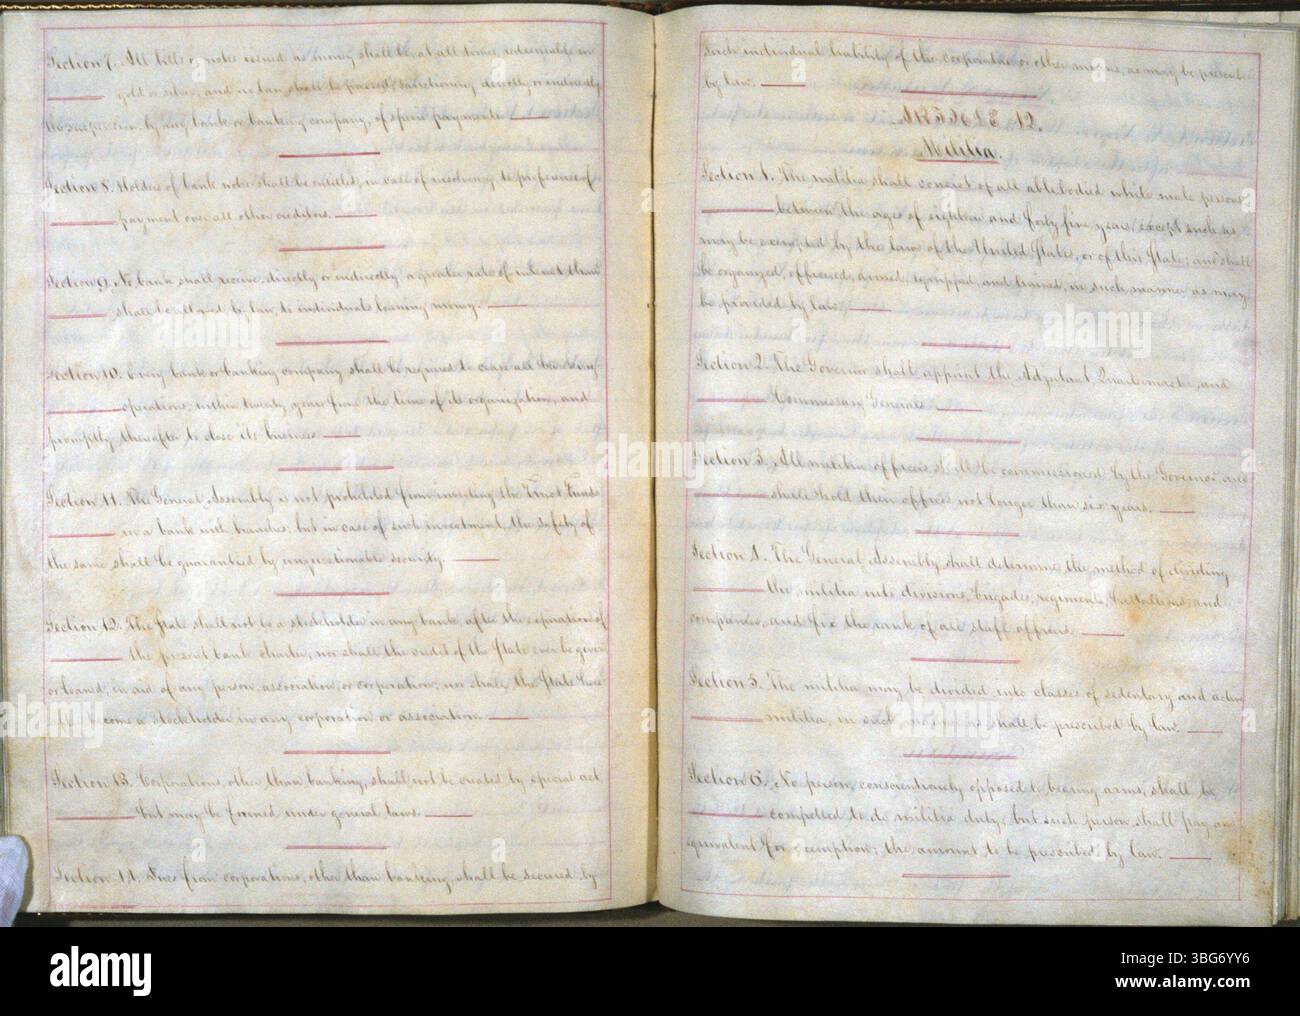 Section 7. All bills or notes issued as money shall be, at all times, redeemable in
gold or silver; and no law shall be passed, sanctioning directly or indirectly
the suspension by any bank or banking company, of specie payments.
Section 8. Holders of bank notes shall be entitled, in case of insolvency, to preference of
payment over all other creditors.
Section 9. No bank shall receive, directly or indirectly a greater rate of interest than
shall be allowed by law, to individuals loaning money.
Section 10. Every bank or banking company shall be required to cease all banking
operations, within twenty years from the time of its organization, and
promptly thereafter to close its business.
Section 11. The General Assembly is not prohibited from investing the Trust Funds
in a bank with branches; but in case of such investment, the safety of
the same shall be guaranteed by unquestionable security.
Section 12. The State shall not be a stockholder in any bank, after the expiration of
the present bank charter; nor shall the credit of the State ever be given
or loaned, in aid of any person, association, or corporation; nor shall the State here-
after become a stockholder in any corporation or association.
Section 13. Corporations, other than banking, shall not be created by special act
but may be formed under general laws.
Section 14. Dues from corporations, other than banking, shall be secured by
Such individual liability of the corporators or other means, as may be prescribed
by law.
ARTICLE 12.
Militia.
Section 1. The militia shall consist of all able bodied white male persons
between the ages of eighteen and forty five years, except such as
may be exempted by the law of the United States, or of this State; and shall
be organized, officered, armed, equipped, and trained, in such manner as may
be provided by law.
Section 2. The Governor shall appoint the Adjutant, Quartermaster and
Commissary Generals.
Section 3. All militia officers shall be commissioned by the Governor and
shall hold their offices not longer than six years.
Section 4. The General Assembly shall determine the method of dividing
the militia into divisions, brigades, regiments, battallions, and
companies, and fix the rank of all staff officers.
Section 5. The militia may be divided into classes of sedentary and active
militia, in such manner as shall be prescribed by law.
Section 6. No person, conscientiously opposed to bearing arms, shall be
compelled to do militia duty; but such person shall pay an
equivalent for exemption; the amount to be prescribed by law.
alamy
alamy
Image ID: 3BG6YY6
www.alamy.com